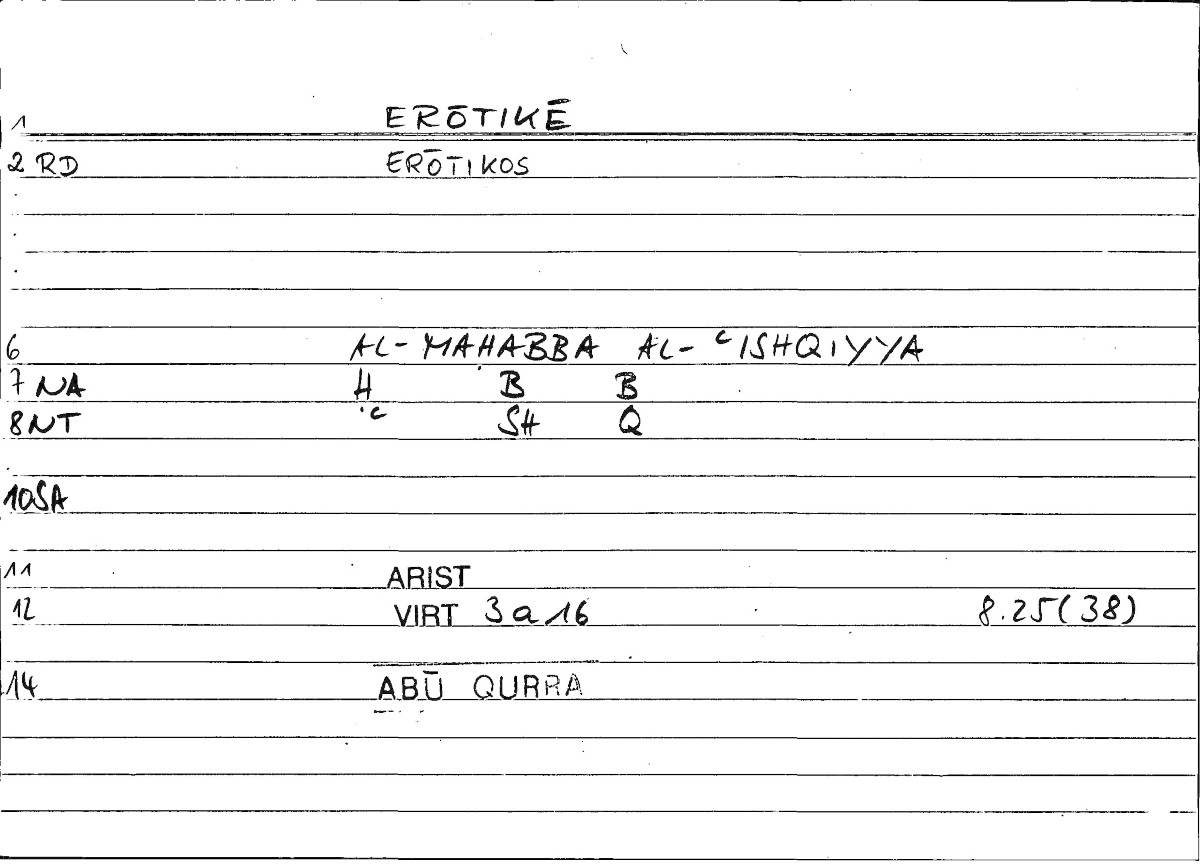 1 ERŌTIKĒ
2 RD ERŌTIKOS
6 AL-MAHABBA AL-ʿISHQIYYA
7 NA Ḥ B B
8 NT ʿ SH Q
10 SA
11 ARIST
12 VIRT 3a16 8.25(38)
14 ABŪ QURRA